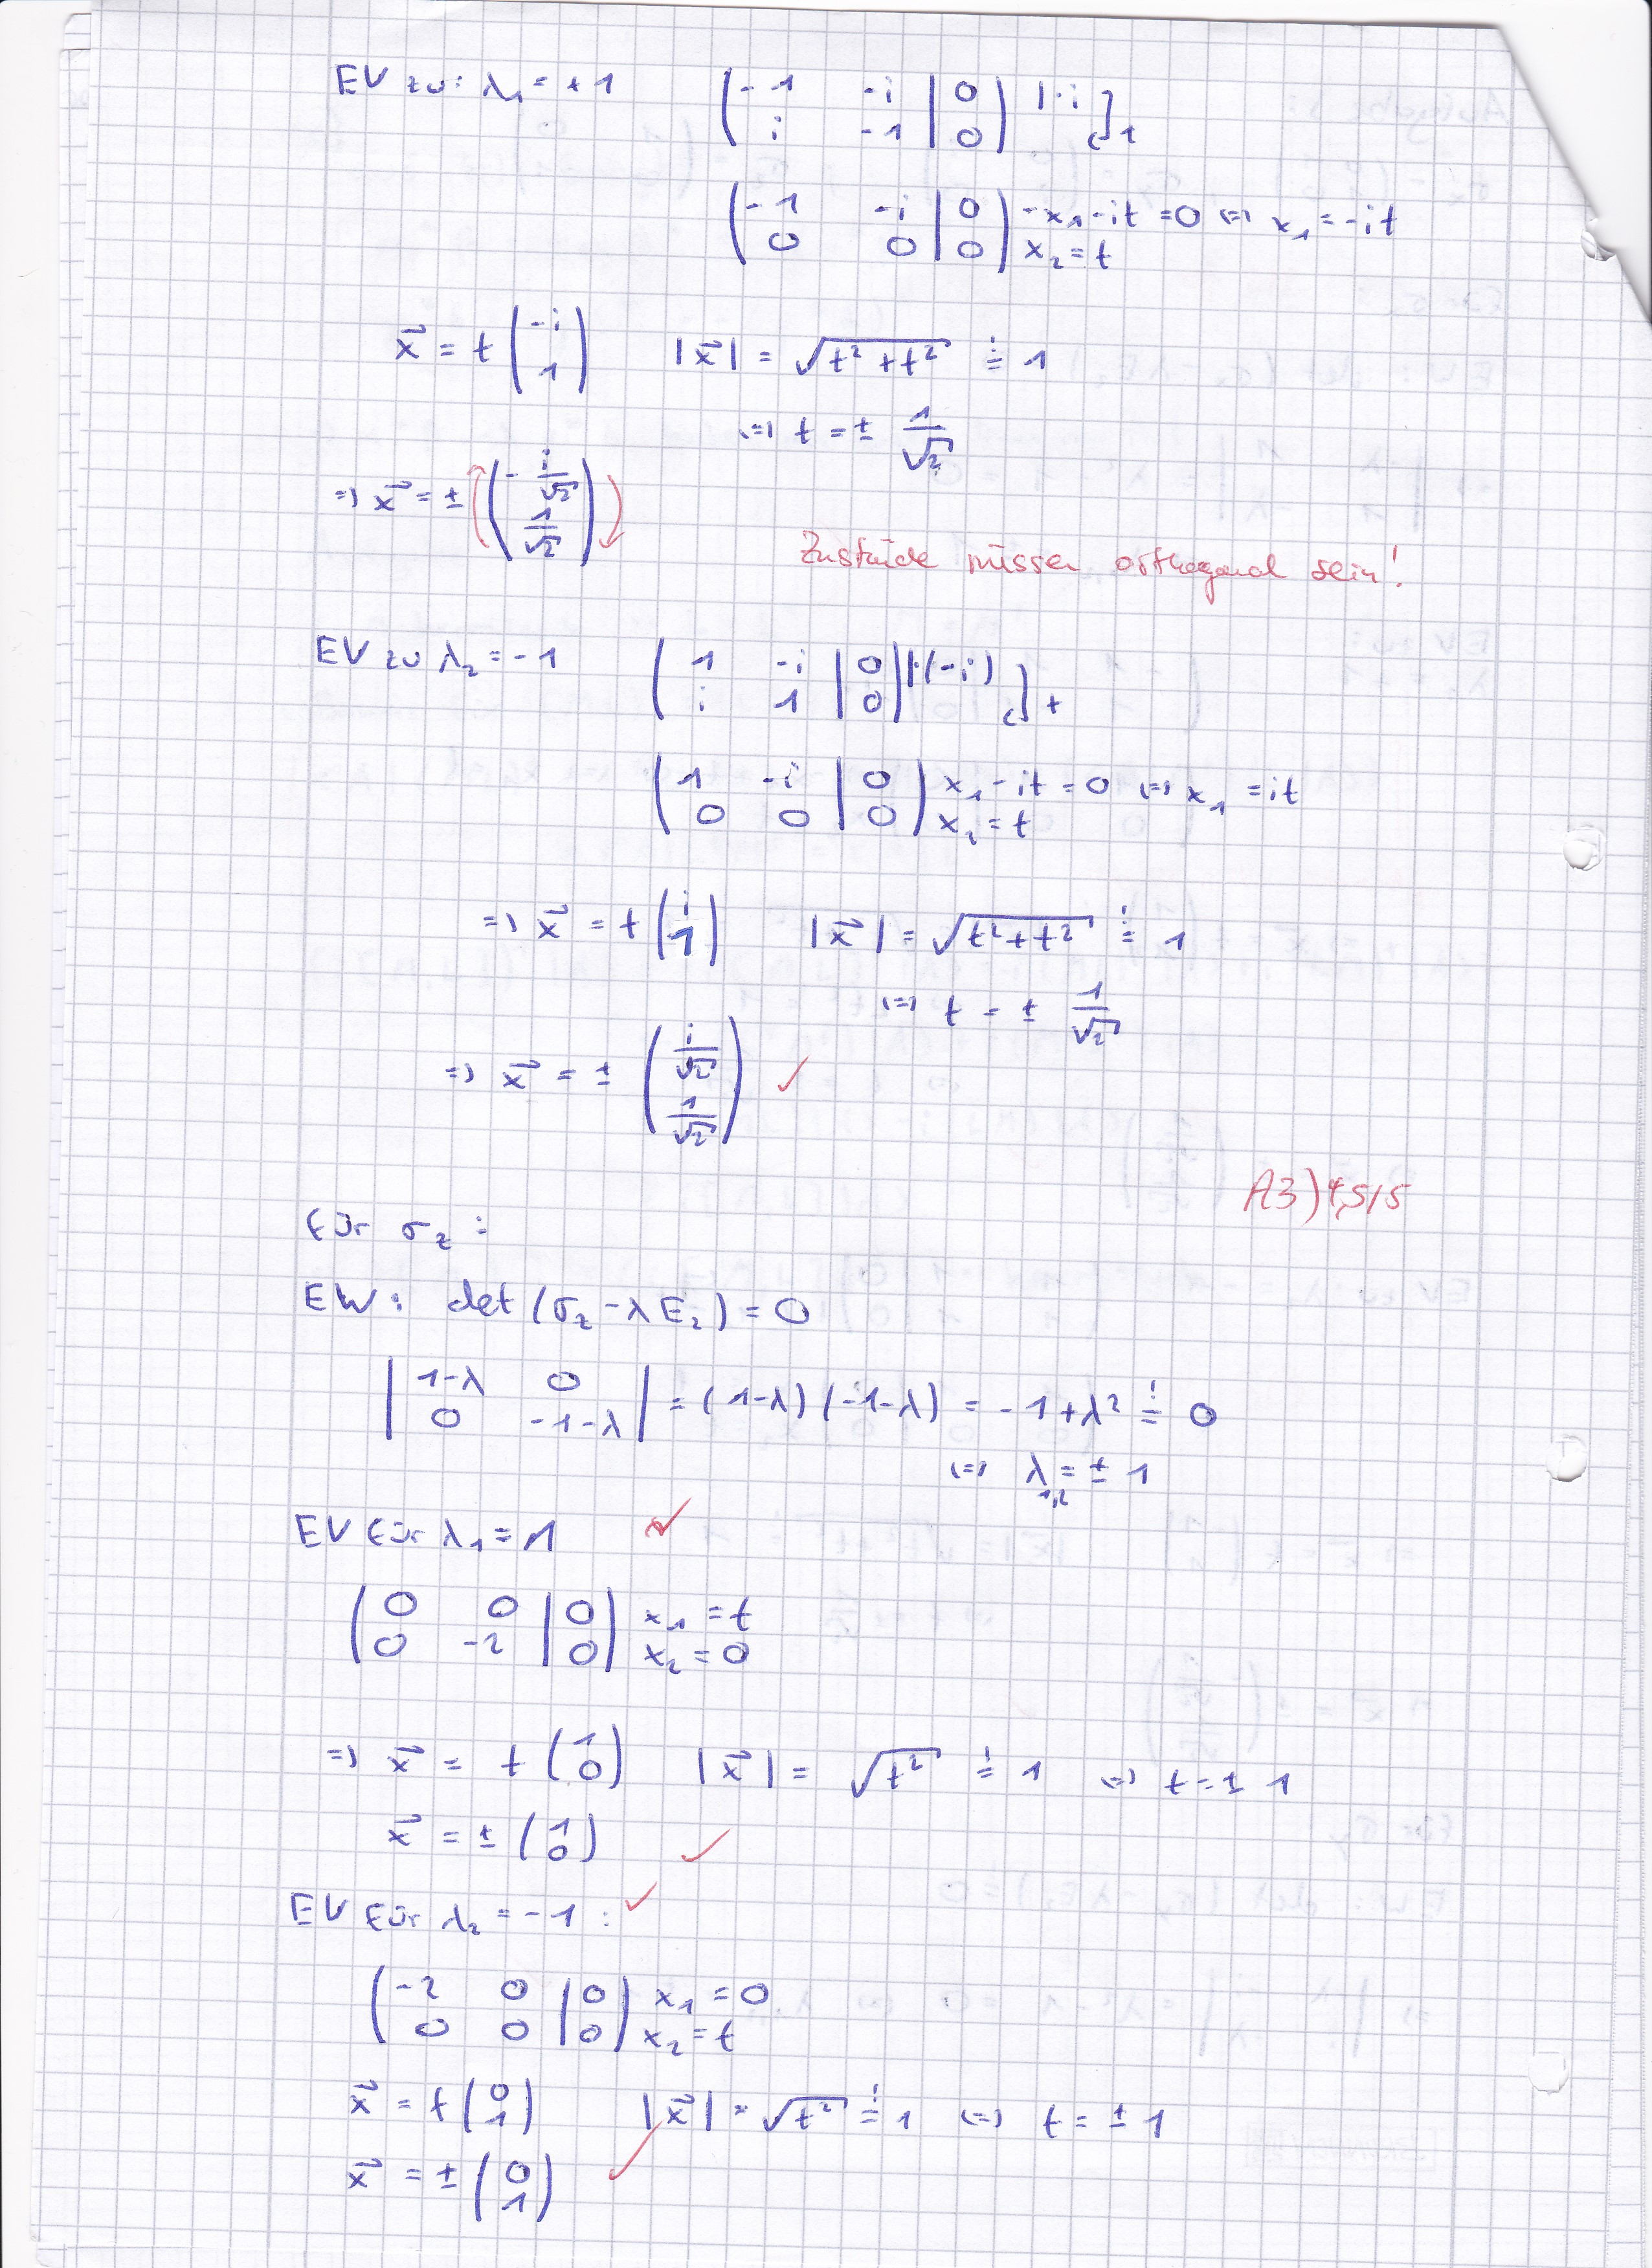 EV zu: λ₁ = +1 ( -1 -i | 0 ) | ·i
( i -1 | 0 ) ]₁
( -1 -i | 0 ) -x₁ - it = 0 ⇔ x₁ = -it
( 0 0 | 0 ) x₂ = t
x⃗ = t ( -i 1 ) |x⃗| = √(t² + t²) =! 1
⇔ t = ± 1/√2
⇒ x⃗ = ± ( -i/√2 1/√2 )
Zustände müssen orthogonal sein!
EV zu λ₂ = -1 ( 1 -i | 0 ) | ·(-i)
( i 1 | 0 ) ] +
( 1 -i | 0 ) x₁ - it = 0 ⇔ x₁ = it
( 0 0 | 0 ) x₂ = t
⇒ x⃗ = t ( i 1 ) |x⃗| = √(t² + t²) =! 1
⇔ t = ± 1/√2
⇒ x⃗ = ± ( i/√2 1/√2 ) ✓
A3) 4,5/5
für σ_z :
EW: det (σ_z - λE₂) = 0
| 1-λ 0 |
| 0 -1-λ | = (1-λ)(-1-λ) = -1 + λ² =! 0
⇔ λ₁,₂ = ± 1
EV für λ₁ = 1 ✓
( 0 0 | 0 ) x₁ = t
( 0 -2 | 0 ) x₂ = 0
⇒ x⃗ = t ( 1 0 ) |x⃗| = √(t²) =! 1 ⇔ t = ± 1
x⃗ = ± ( 1 0 ) ✓
EV für λ₂ = -1 : ✓
( -2 0 | 0 ) x₁ = 0
( 0 0 | 0 ) x₂ = t
x⃗ = t ( 0 1 ) |x⃗| = √(t²) =! 1 ⇔ t = ± 1
x⃗ = ± ( 0 1 ) ✓